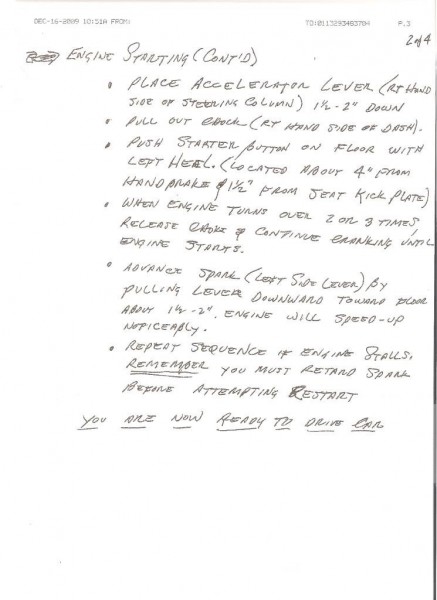 DEC-16-2009 10:51A FROM: TO:0113293463704 P.3
2 of 4
ENGINE STARTING (CONT'D)
• PLACE ACCELERATOR LEVER (RT HAND
SIDE OF STEERING COLUMN) 1½-2" DOWN
• PULL OUT CHOCK (RT HAND SIDE OF DASH).
• PUSH STARTER BUTTON ON FLOOR WITH
LEFT HEEL. (LOCATED ABOUT 4" FROM
HANDBRAKE & 1½" FROM SEAT KICK PLATE)
• WHEN ENGINE TURNS OVER 2 OR 3 TIMES,
RELEASE CHOKE & CONTINUE CRANKING UNTIL
ENGINE STARTS.
• ADVANCE SPARK (LEFT SIDE LEVER) BY
PULLING LEVER DOWNWARD TOWARD FLOOR
ABOUT 1½-2". ENGINE WILL SPEED-UP
NOTICEABLY.
• REPEAT SEQUENCE IF ENGINE STALLS.
REMEMBER YOU MUST RETARD SPARK
BEFORE ATTEMPTING RESTART
YOU ARE NOW READY TO DRIVE CAR